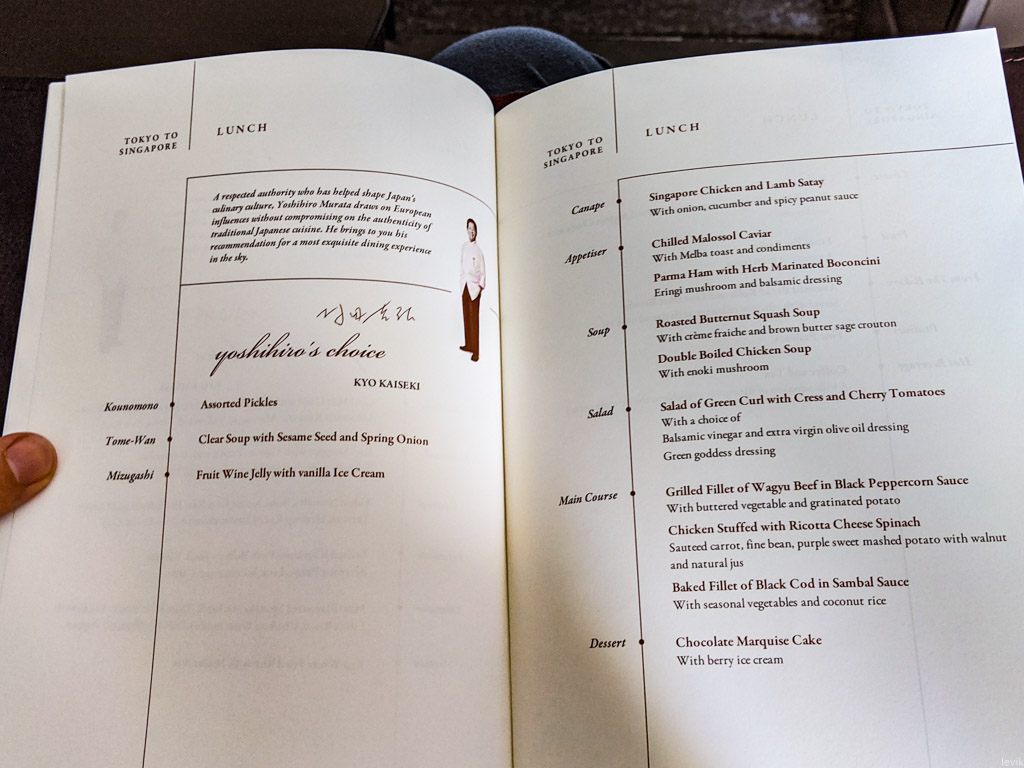 TOKYO TO
SINGAPORE
LUNCH
A respected authority who has helped shape Japan's
culinary culture, Yoshihiro Murata draws on European
influences without compromising on the authenticity of
traditional Japanese cuisine. He brings to you his
recommendation for a most exquisite dining experience
in the sky.
yoshihiro's choice
KYO KAISEKI
Kounomono
Assorted Pickles
Tome-Wan
Clear Soup with Sesame Seed and Spring Onion
Mizugashi
Fruit Wine Jelly with vanilla Ice Cream
TOKYO TO
SINGAPORE
LUNCH
Canape
Singapore Chicken and Lamb Satay
With onion, cucumber and spicy peanut sauce
Appetiser
Chilled Malossol Caviar
With Melba toast and condiments
Parma Ham with Herb Marinated Boconcini
Eringi mushroom and balsamic dressing
Soup
Roasted Butternut Squash Soup
With crème fraiche and brown butter sage crouton
Double Boiled Chicken Soup
With enoki mushroom
Salad
Salad of Green Curl with Cress and Cherry Tomatoes
With a choice of
Balsamic vinegar and extra virgin olive oil dressing
Green goddess dressing
Main Course
Grilled Fillet of Wagyu Beef in Black Peppercorn Sauce
With buttered vegetable and gratinated potato
Chicken Stuffed with Ricotta Cheese Spinach
Sauteed carrot, fine bean, purple sweet mashed potato with walnut
and natural jus
Baked Fillet of Black Cod in Sambal Sauce
With seasonal vegetables and coconut rice
Dessert
Chocolate Marquise Cake
With berry ice cream
levik